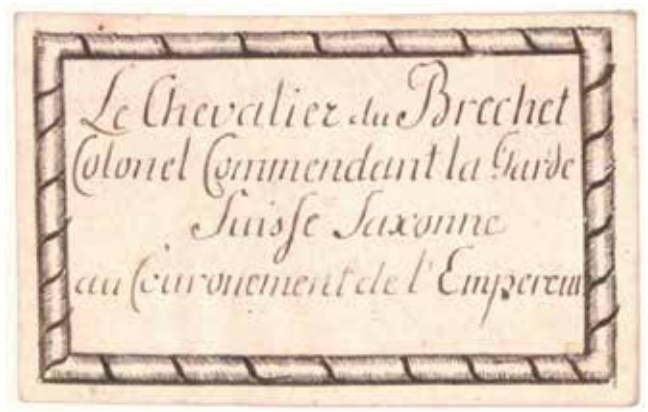 Le Chevalier du Brechet
Colonel Commendant la Garde
Suisse Saxonne
au Courounement de l'Empereur